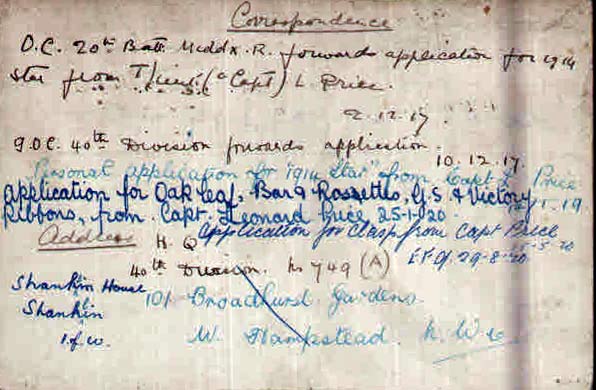 Correspondence
O.C. 20th Batt. Middx. R. forwards application for 1914
Star from T/Lieut (a Capt) L Price.
2.12.17.
G.O.C. 40th Division forwards application.
10.12.17.
Personal application for "1914 Star" from Capt L Price
1.19.
Application for Oak Leaf, Bar & Rossettes, G.S. & Victory
Ribbons, from Capt. Leonard Price 25-1-20.
Application for Clasp from Capt Price
Address
H. Q
40th Division.
749 (A)
29-8-20
Shanklin House
Shanklin
I. of W.
101 Broadhurst Gardens
W. Hampstead. N.W.6